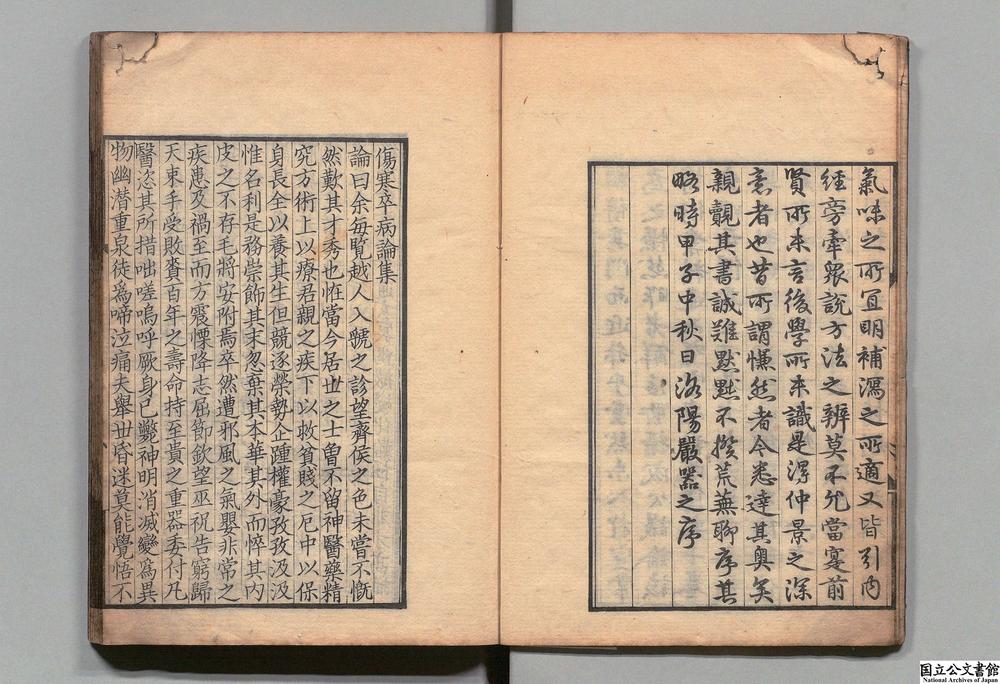 氣味之所宜明補瀉之所適又皆引內
經旁牽衆說方法之辨莫不允當寔前
賢所未言後學所未識是淂仲景之深
意者也昔所謂慊然者今悉達其奧矣
親覿其書誠難默默不揆荒蕪聊序其
略時甲子中秋日洛陽嚴器之序
傷寒卒病論集
論曰余每覧越人入虢之診望齊侯之色未嘗不慨
然歎其才秀也恠當今居世之士曽不留神醫藥精
究方術上以療君親之疾下以救貧賤之厄中以保
身長全以養其生但競逐榮勢企踵權豪孜孜汲汲
惟名利是務崇飾其末忽棄其本華其外而悴其內
皮之不存毛將安附焉卒然遭邪風之氣嬰非常之
疾患及禍至而方震慄降志屈節欽望巫祝告窮歸
天束手受敗賫百年之壽命持至貴之重器委付凡
醫恣其所措咄嗟嗚呼厥身已斃神明消滅變爲異
物幽潜重泉徒爲啼泣痛夫舉丗昏迷莫能覺悟不
国立公文書館
National Archives of Japan